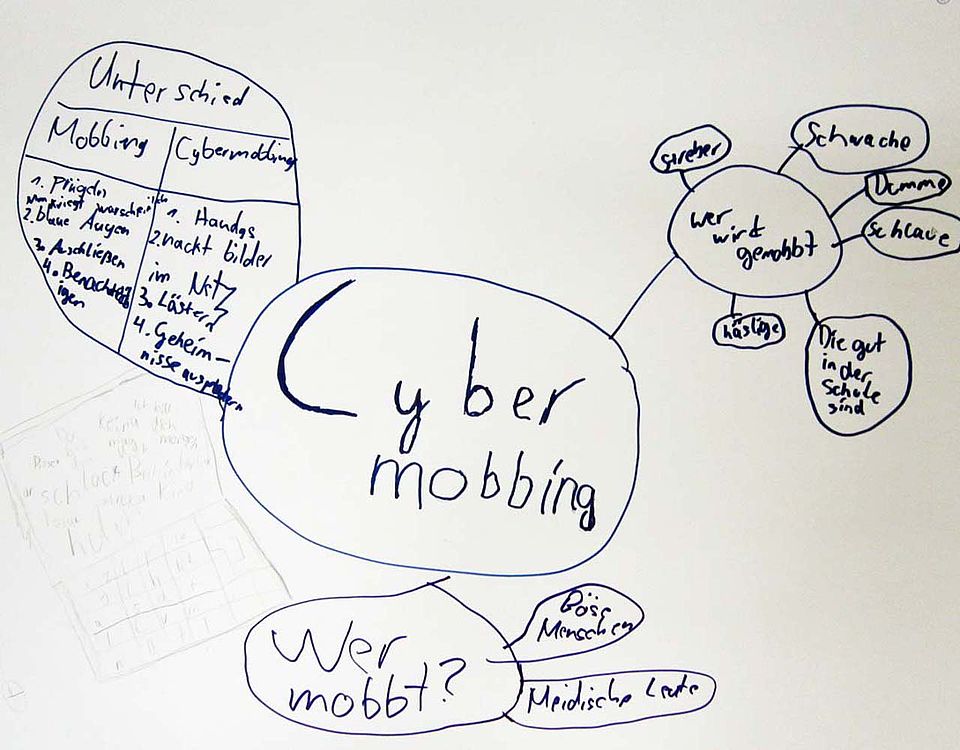 Unterschied
Mobbing
Cybermobbing
1. Prügeln
2. blaue Augen
3. Auschließen
4. Benachteil
igen
1. Handys
2. nackt bilder
im Netz
3. Lästern
4. Geheim-
nisse ausplaudern
Cyber
mobbing
wer
wird
gemobbt
streber
Schwache
Dumme
Schlaue
Die gut
in der
Schule
sind
häslige
Wer
mobbt?
Böse
Menschen
Neidische Leute